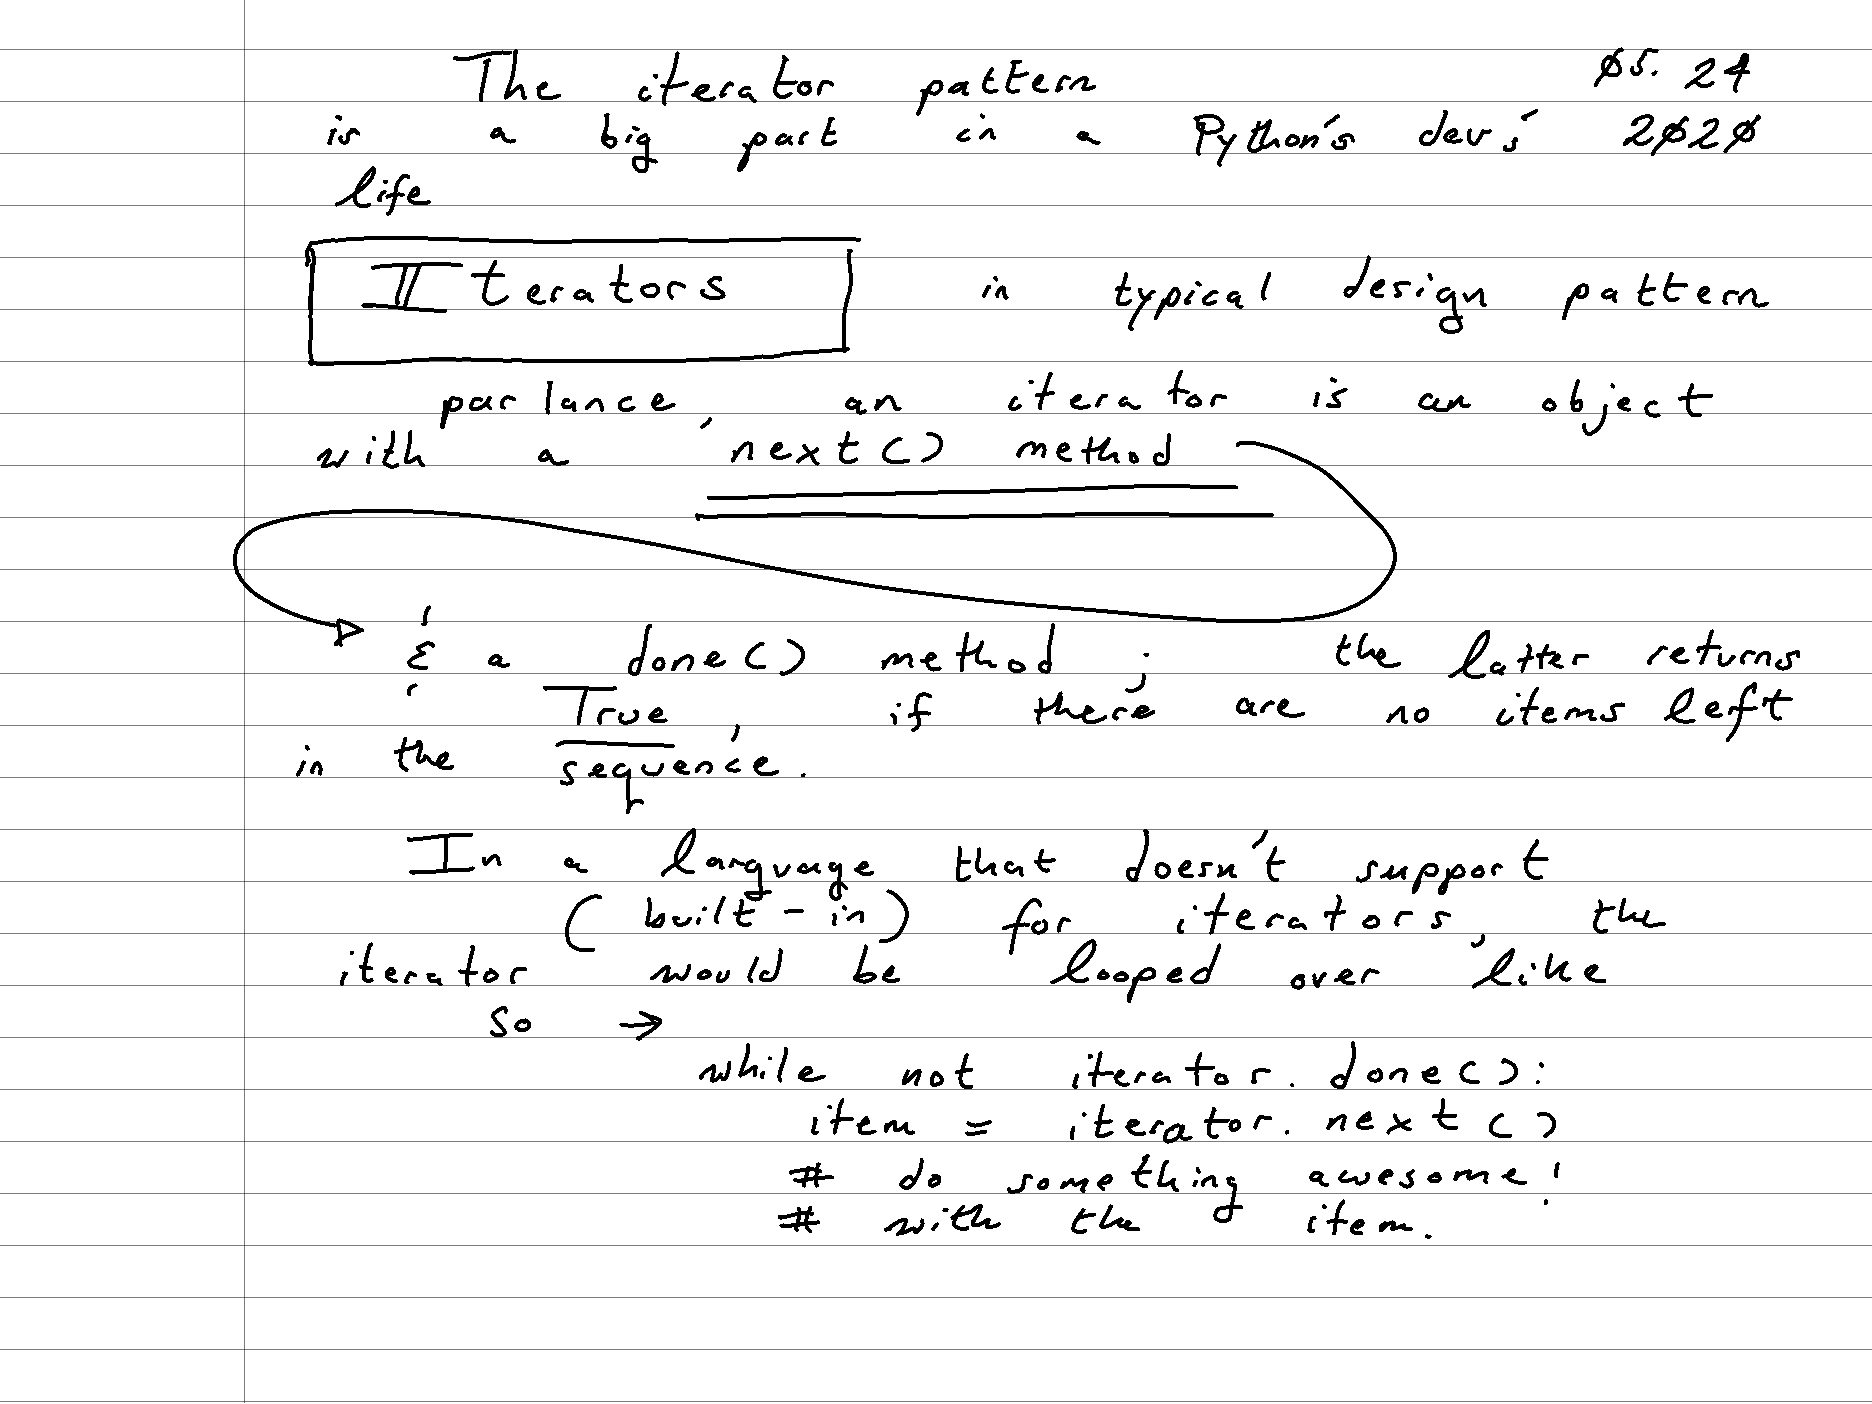 The iterator pattern ø5. 24
is a big part in a Python's dev's 2ø2ø
life
Iterators in typical design pattern
parlance, an iterator is an object
with a next() method
& a done() method; the latter returns
True, if there are no items left
in the sequence.
In a language that doesn't support
(built-in) for iterators, the
iterator would be looped over like
so →
while not iterator.done():
item = iterator.next()
# do something awesome!
# with the item.